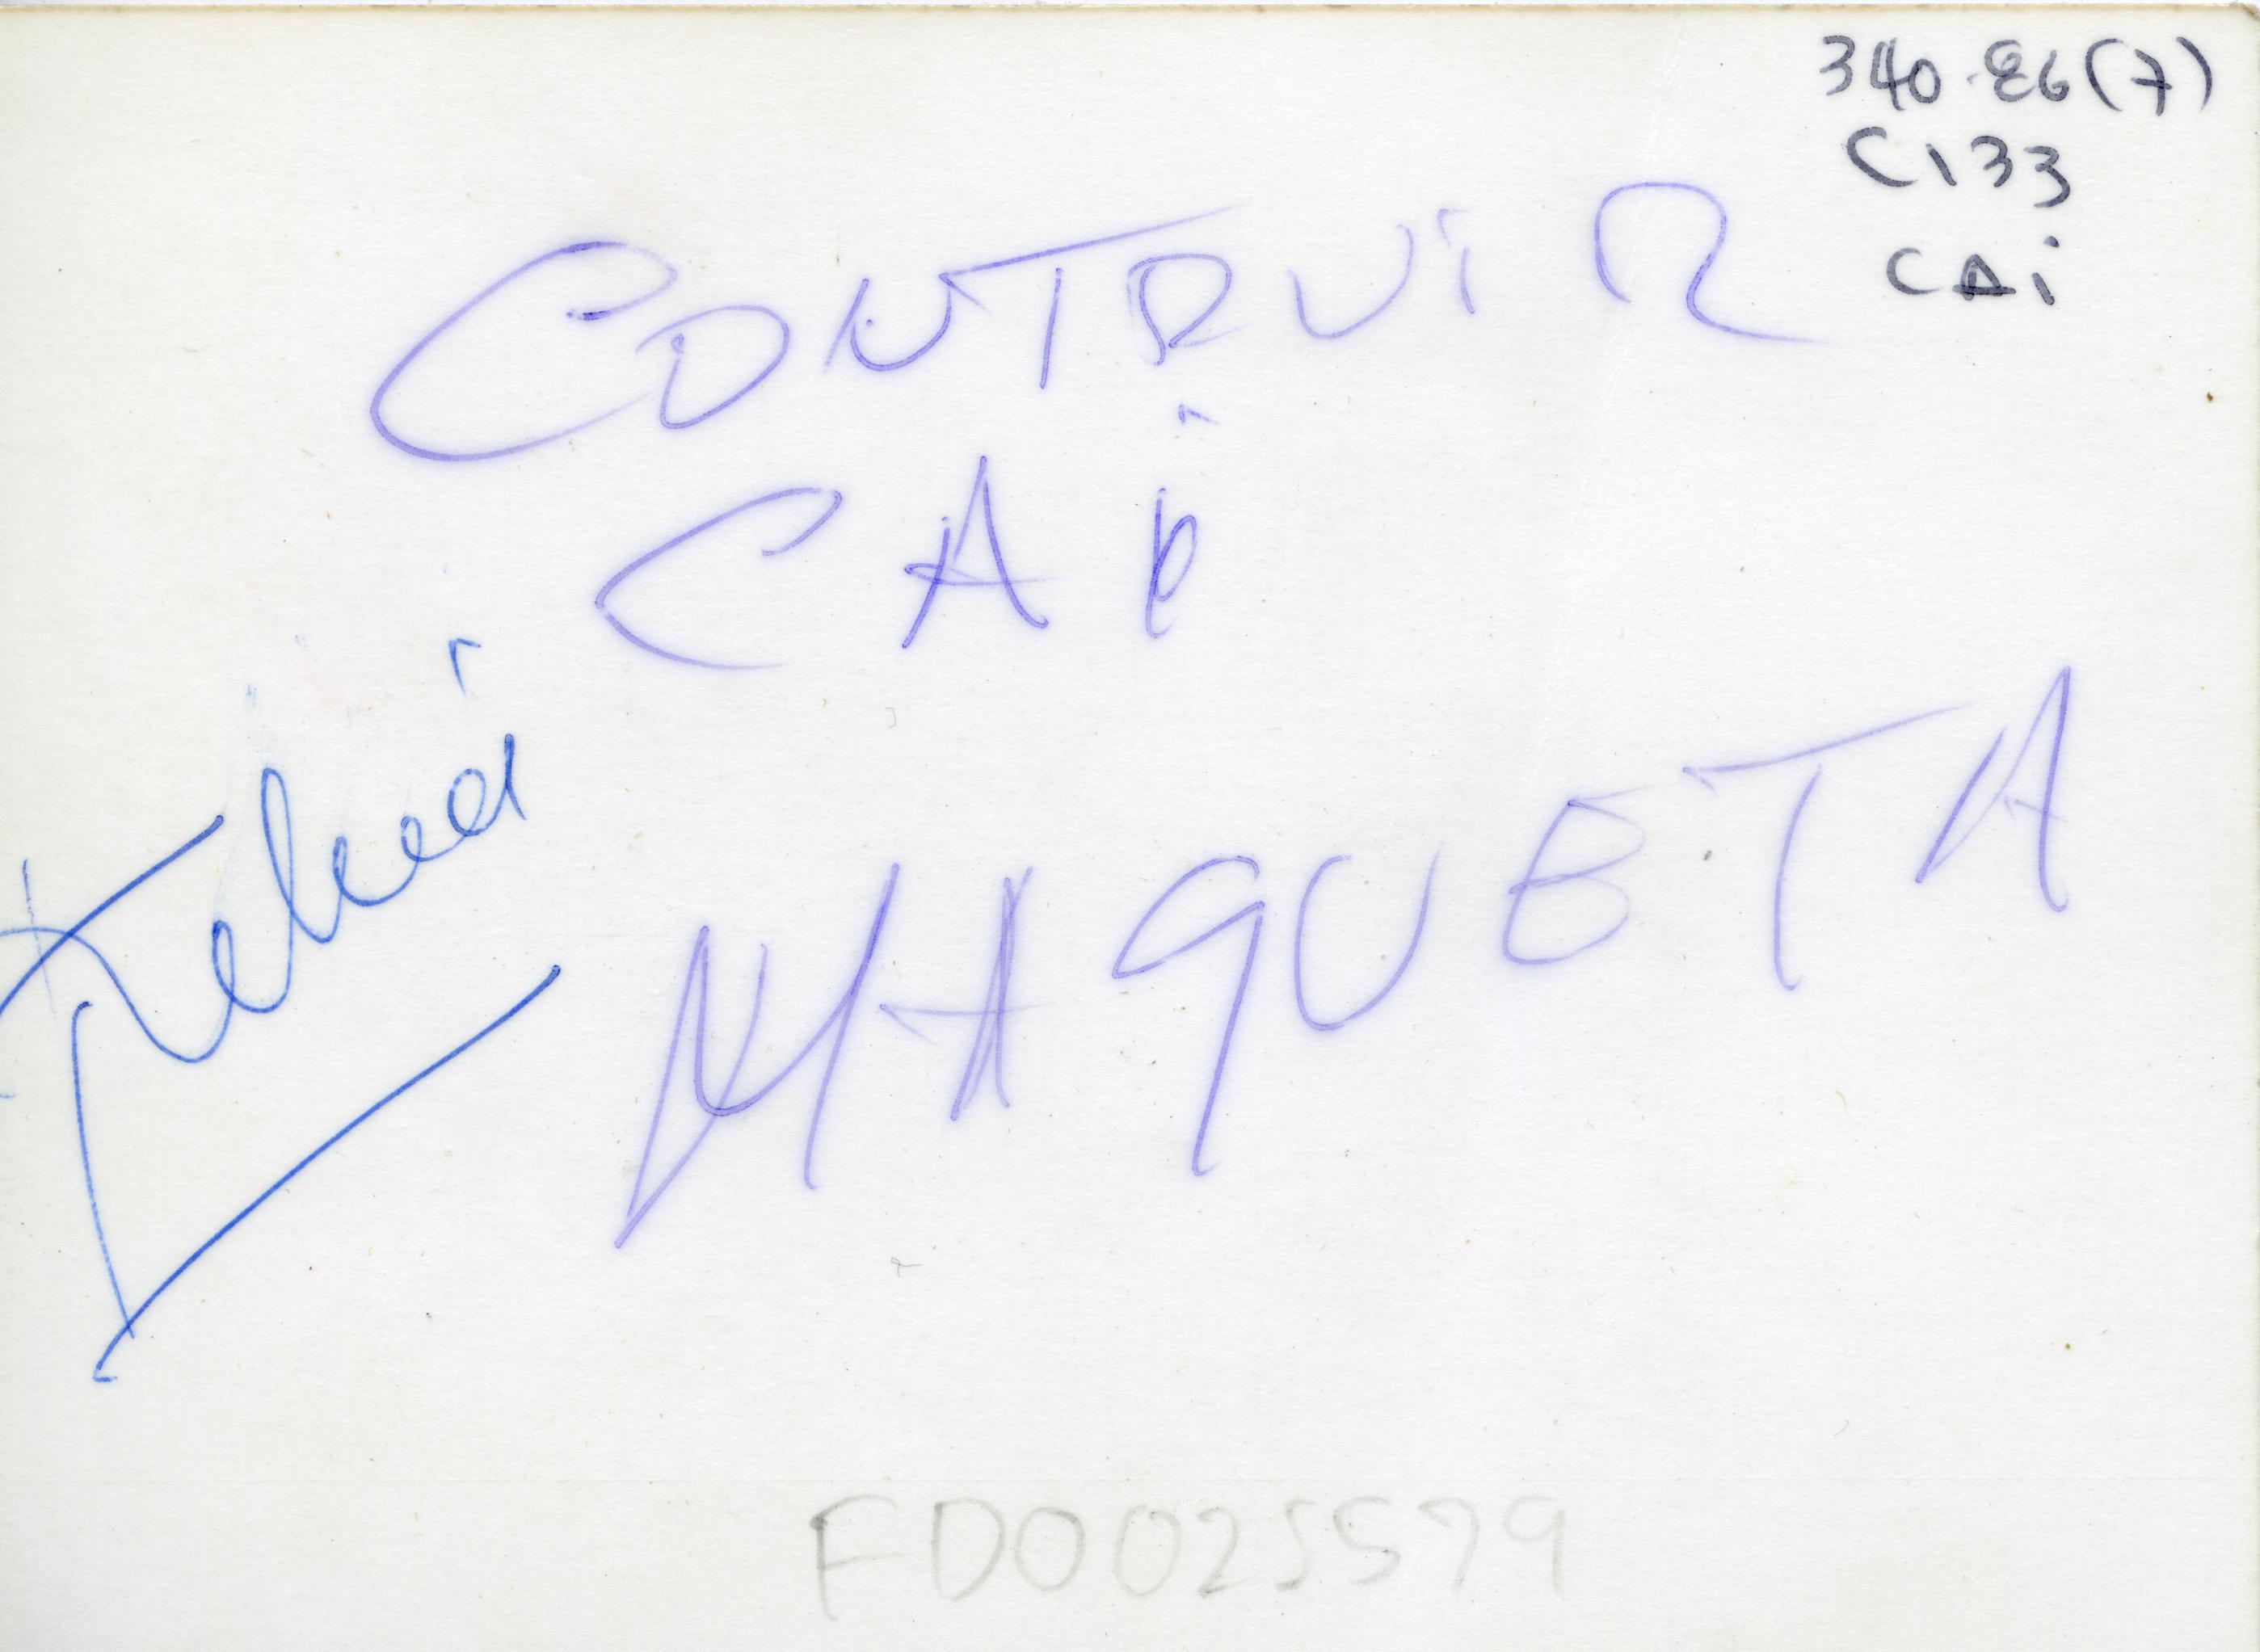 340-86(7)
C133
CAi
CONTRUiR
CAi
MAQUETA
FD0025579